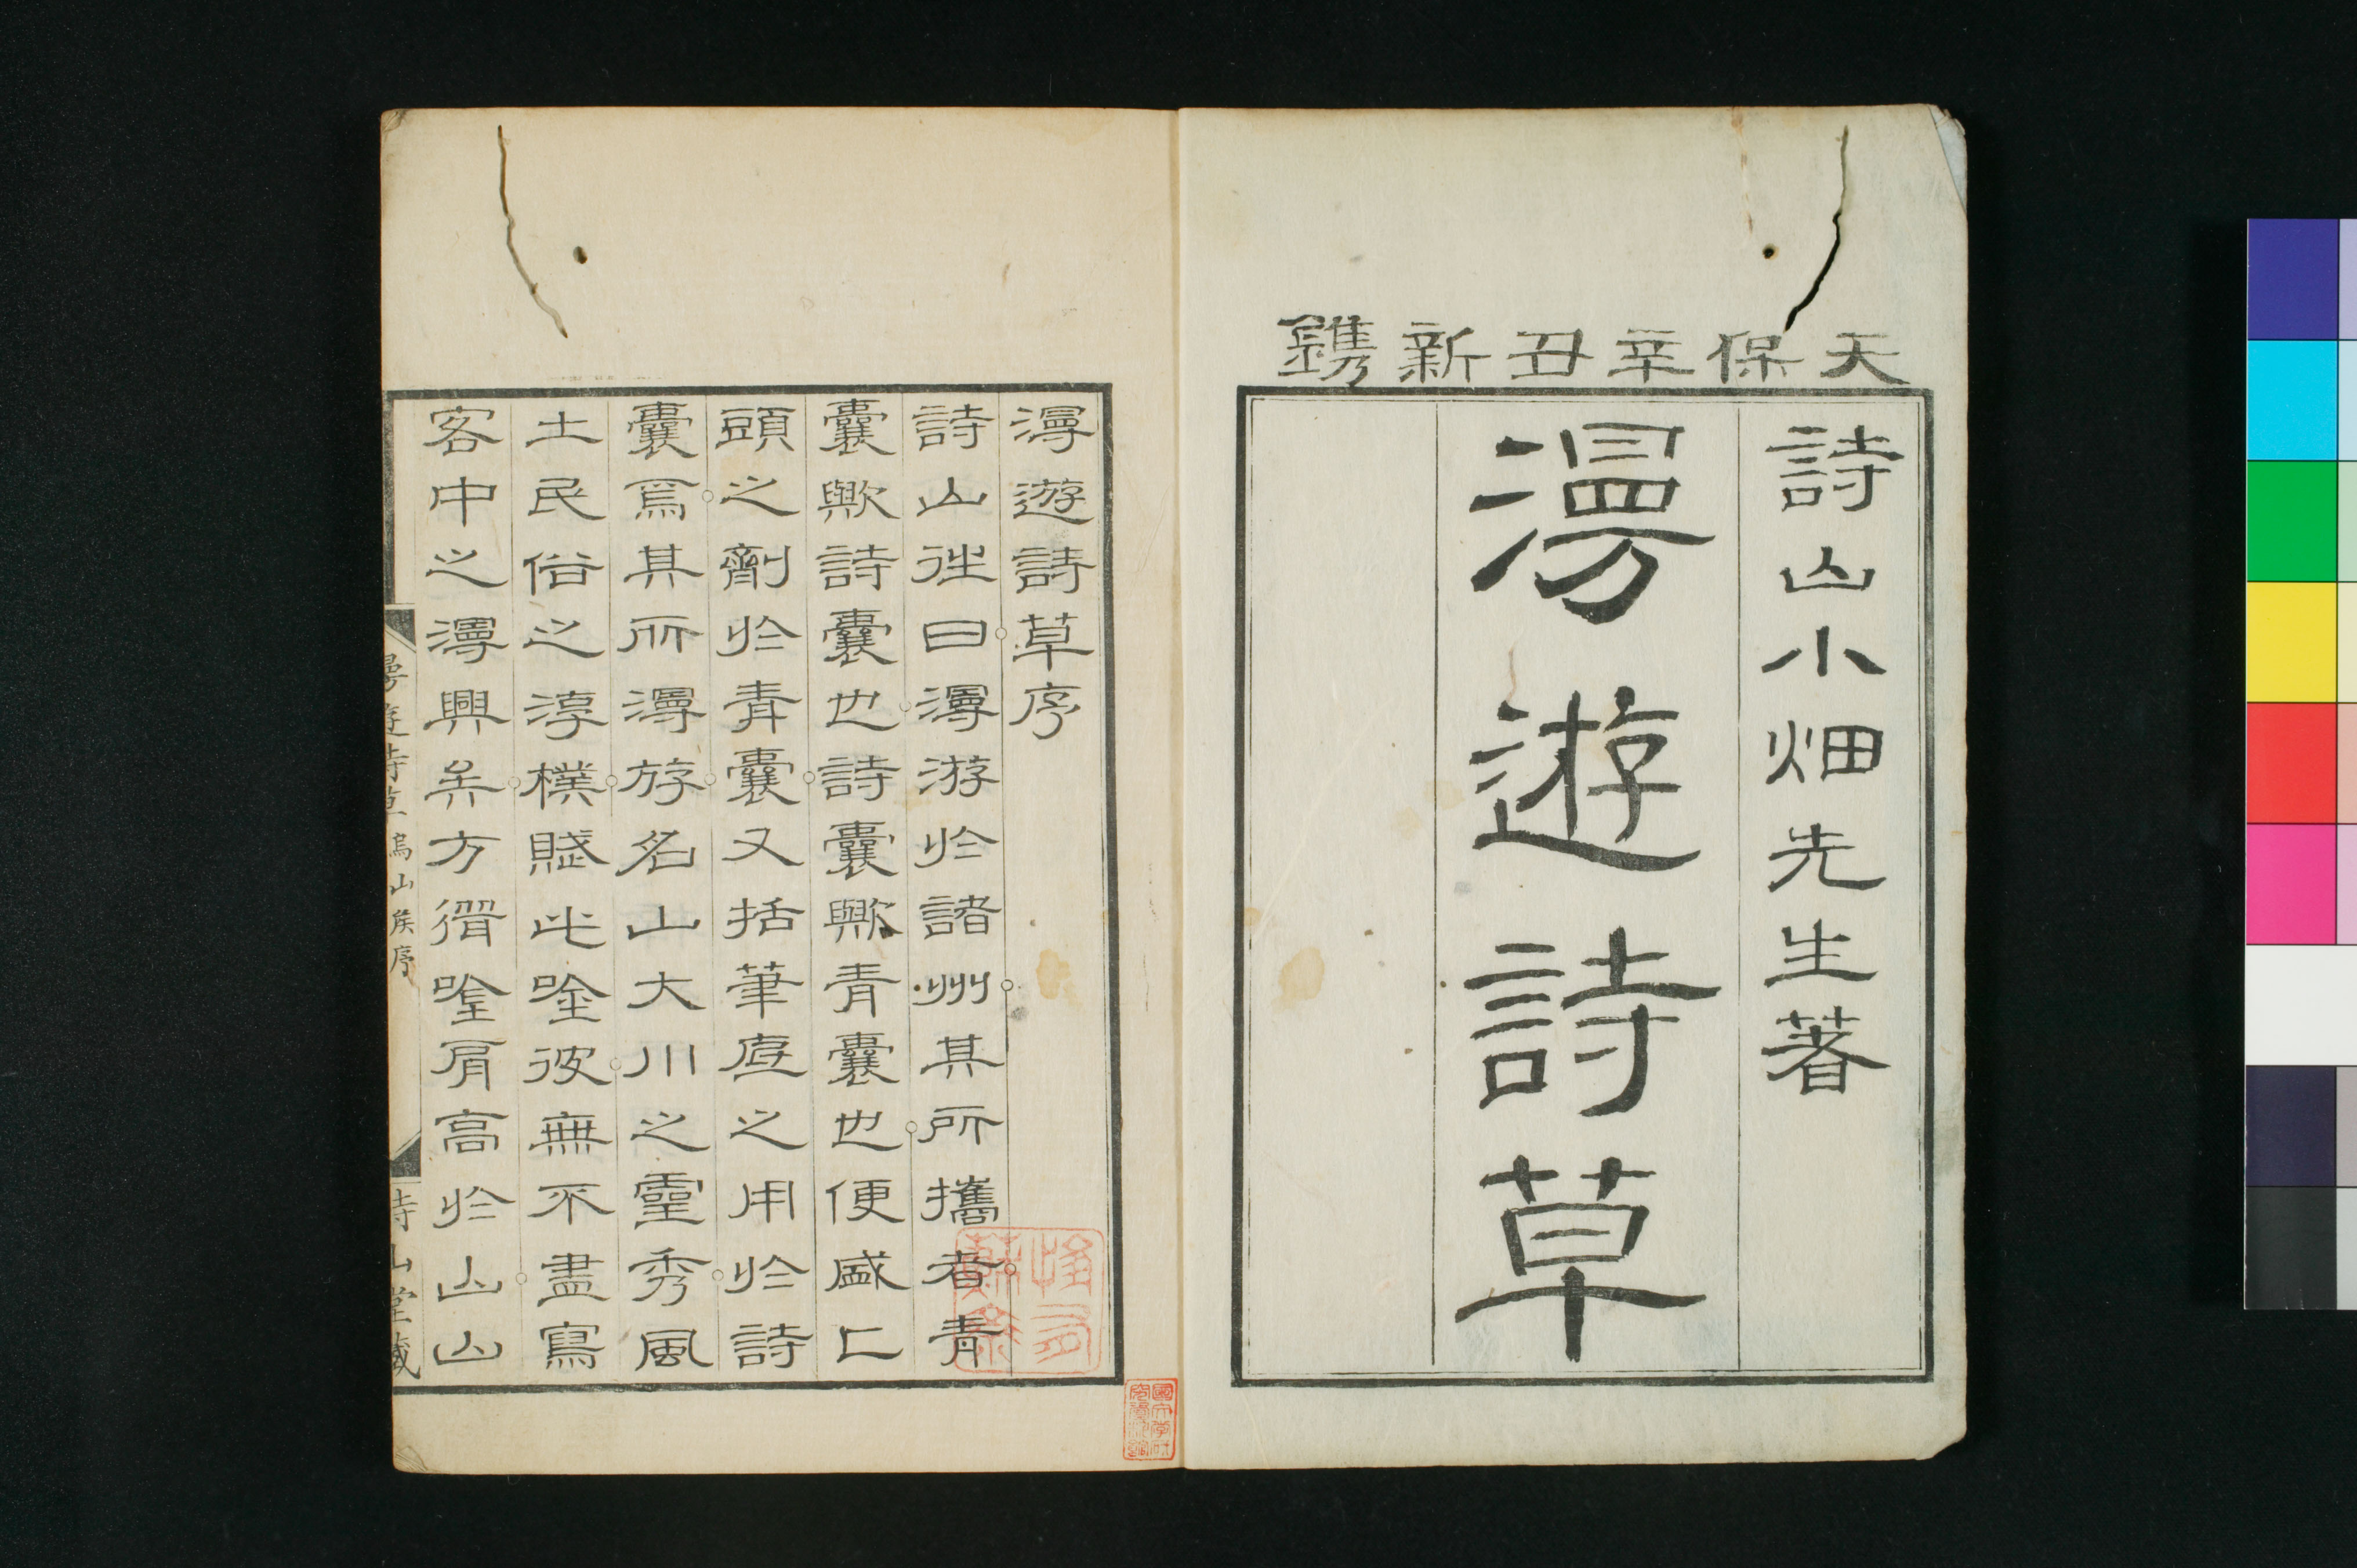 天保辛丑新鐫
詩山小畑先生著
漫遊詩草
漫遊詩草序
詩山徃曰漫游於諸州其所攜者青
囊歟詩囊也詩囊歟青囊也便盛匕
頭之劑於青囊又括筆底之用於詩
囊焉其所漫游名山大川之靈秀風
土民俗之淳樸賦此唫彼無不盡寫
客中之漫興矣方徟唫肩高於山山
漫遊詩草 烏山矦序 詩山堂藏